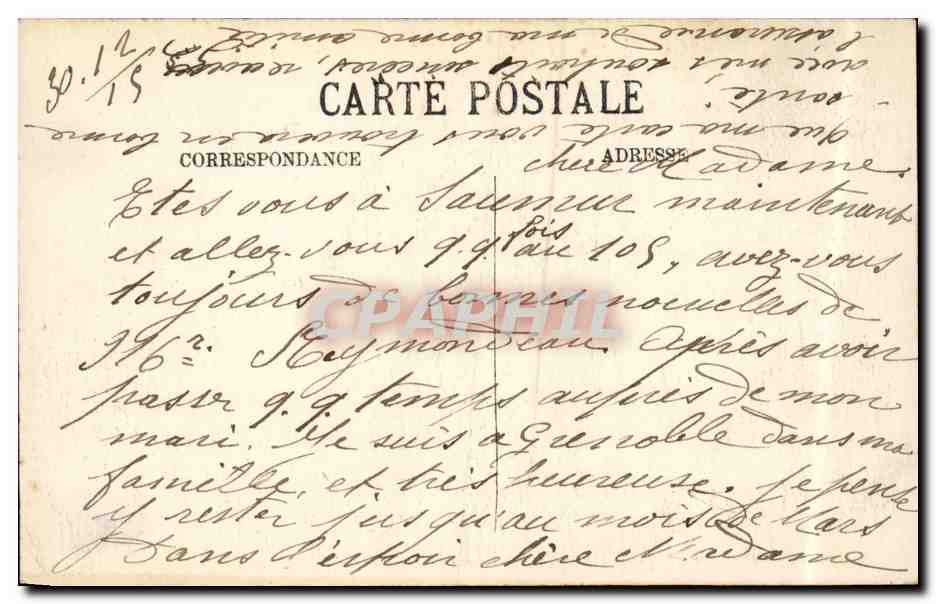 30.12/15
CARTE POSTALE
CORRESPONDANCE
ADRESSE
chère Madame.
Etes vous à Saumur maintenant
et allez-vous q.q fois au 105, avez-vous
toujours de bonnes nouvelles de
Mr. Reymondeau. Après avoir
passer q.q temps auprès de mon
mari. Je suis a Grenoble dans ma
famille, et très heureuse. je pense
y rester jusqu'au mois de Mars
Dans l'espoir chère Madame
que ma carte vous trouvera en bonne
santé.
avec mes souhaits sincères,
l'assurance de ma bonne amitié
CPAPHIL